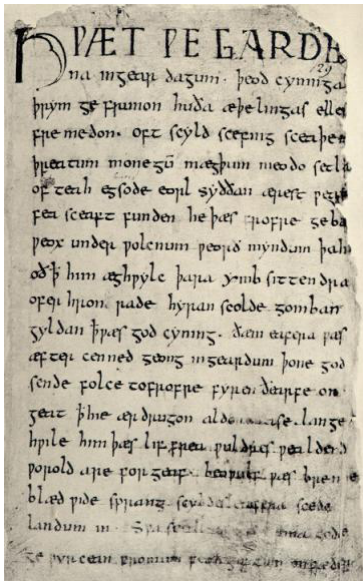 HǷÆT ǷE GARDE
na ingear dagum. þeod cyninga
þrym ge frunon huða æþelingas elle
fremedon. oft scyld scefing sceaþe
þreatum monegū mægþum meodo setla
of teah egsode eorl syððan ærest
fea sceaft funden he þæs frofre geba
ƿeox under ƿolcnum ƿeorð myndum þah
oð ꝥ him æghƿylc þara ymb sittendra
ofer hron rade hyran scolde gomban
gyldan ꝥ ƿæs god cyning. ðæm eafera ƿæs
æfter cenned geong in geardum þone god
sende folce tofrofre fyren ðearfe on
geat ꝥ hie ær drugon aldor ase. lange
hƿile him þæs lif frea ƿuldres ƿealdend
ƿorold are for geaf. beoƿulf ƿæs breme
blæd ƿide sprang scyldes eafera scede
landum in. sƿa
ge ƿyrcean fromum